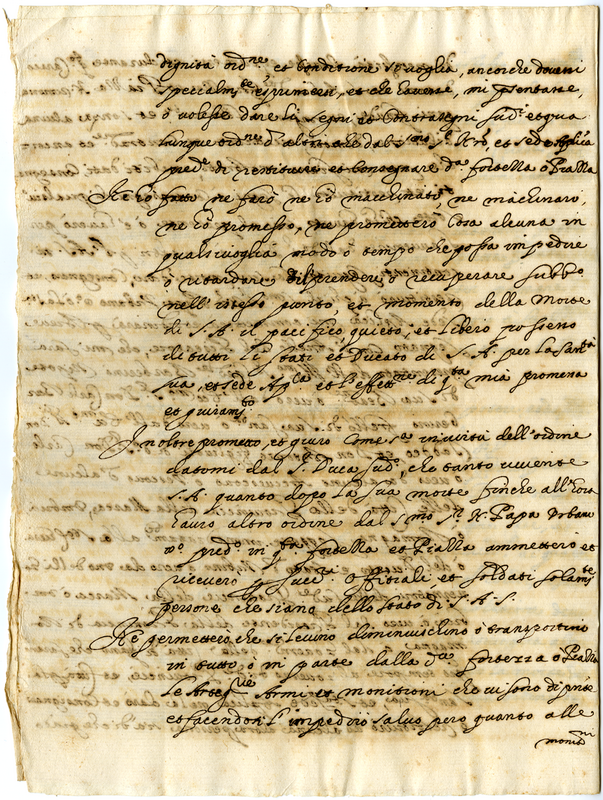 dignità ord.ne et conditione si voglia, ancorche dovessi
specialm.te esprimersi, et che havesse, mi presentasse,
ò volesse dare li segni et contrasegni sud.i et qua
lunque ord.ne d'altri che dal S.mo S.r N.ro, et sede Ap.lica
pred.a di restituire et consegnare d.a fortezza ò Piazza
Ne hò fatto ne farò ne hò macchinato, ne machinarò,
ne hò promesso, ne prometterò cosa alcuna in
qualsivoglia modo ò tempo che possa impedire
ò ritardare di prendere, ò recuperare subbito
nell'istesso punto, et momento della Morte
di S. A. il pacifico, quieto, et libero possesso
di tutti li stati et Ducato di S. A. per la San.tà
sua, et sede Ap.ca et l'effett.ne di q.ta mia promessa
et giuram.to
Inoltre prometto, et giuro come s.a in virtù dell'ordine
datomi dal S.r Duca sud.o, che tanto vivente
S. A. quanto dopo la sua morte finche all'hora
havrò altro ordine dal S.mo S.r N. Papa Urbano
VIII pred.o in q.ta fortezza et Piazza ammetterò et
riceverò succ.ra officiali et soldati solam.te
persone che siano dello stato di S. A. S.
Ne permetterò che si levino diminuischino ò transportino
in tutto, ò in parte dalla d.a fortezza ò Piazza
le Arteg.rie Armi et monitioni che vi sono di pnte
et facendosi l'impedirò salvo però quanto alle
moniti.ni